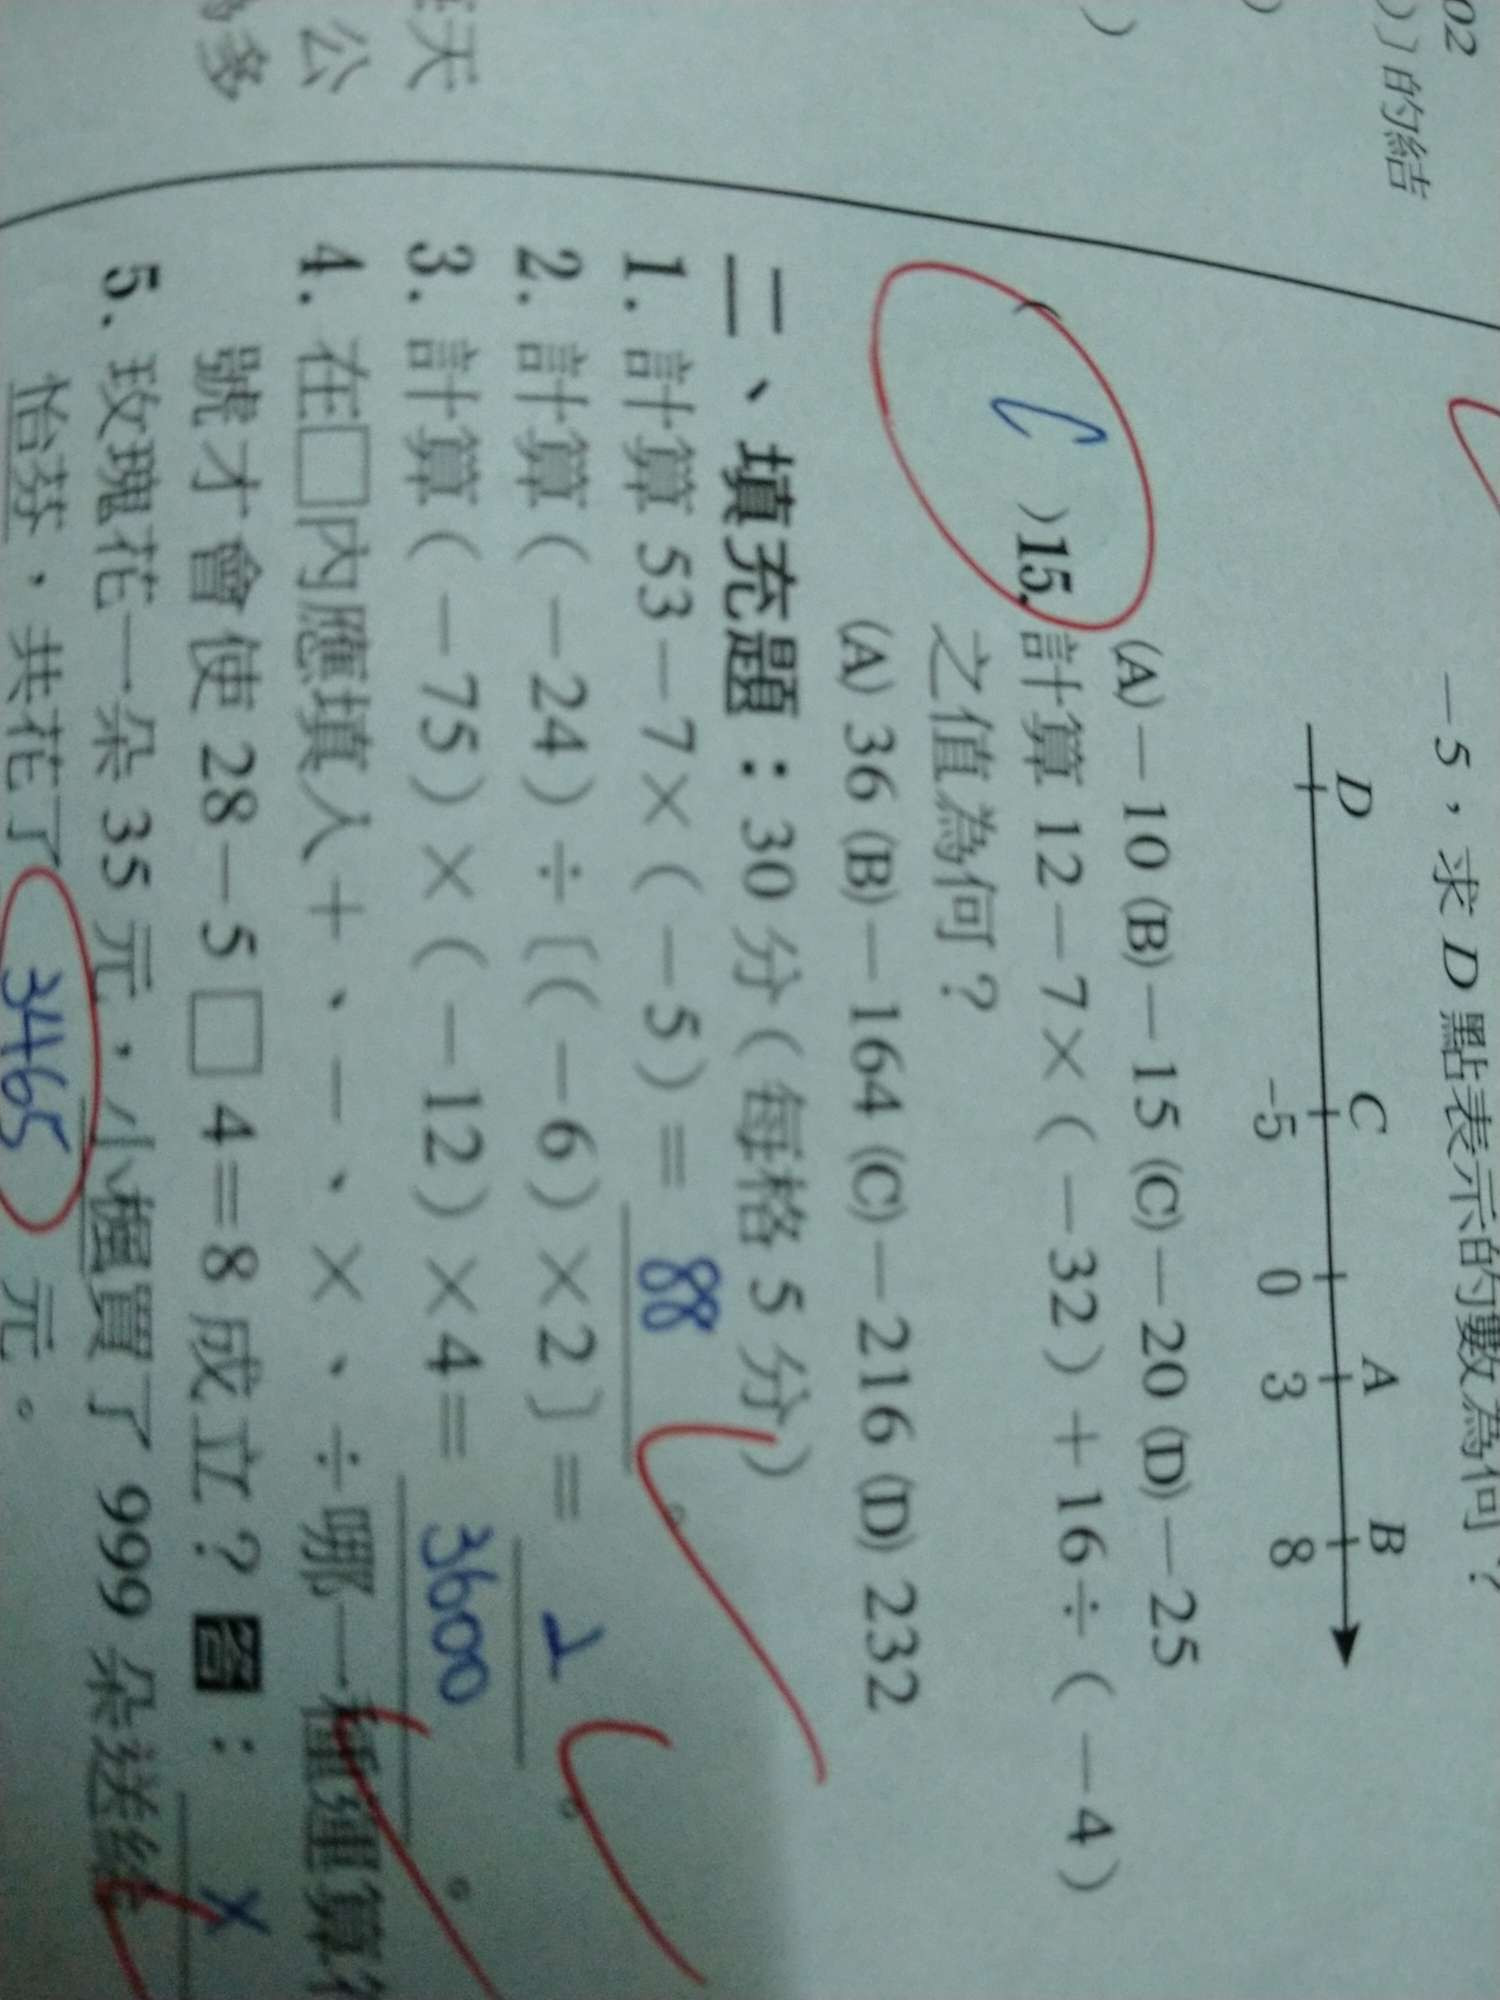 02
)〕的結
)
)
天
公
多
-5，求 D 點表示的數為何？
D C A B
-5 0 3 8
(A)-10 (B)-15 (C)-20 (D)-25
( C )15. 計算 12-7×(-32)+16÷(-4)
之值為何？
(A) 36 (B)-164 (C)-216 (D) 232
二、填充題：30 分(每格 5 分)
1. 計算 53-7×(-5)= 88 。
2. 計算(-24)÷〔(-6)×2〕= 2 。
3. 計算(-75)×(-12)×4= 3600 。
4. 在□內應填入+、-、×、÷哪一種運算符
號才會使 28-5□4=8 成立？答：×
5. 玫瑰花一朵 35 元，小櫃買了 999 朵送給
怡芬，共花了 3465 元。